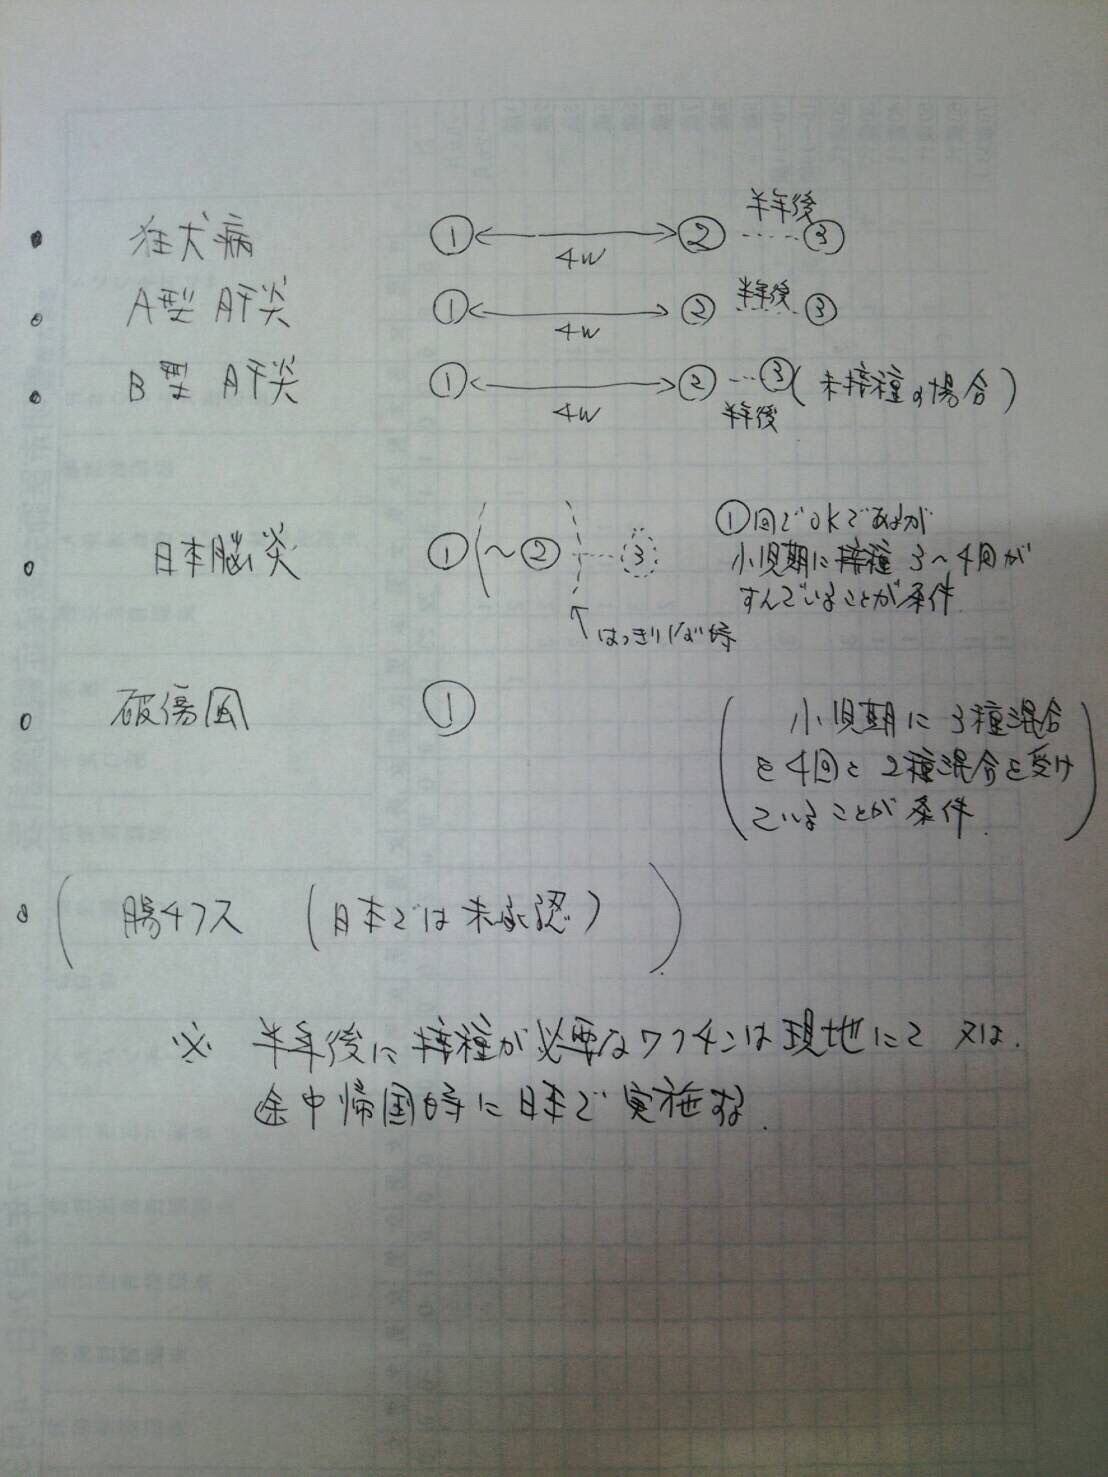 狂犬病 ①←4w→② 半年後 ③
A型肝炎 ①←4w→② 半年後 ③
B型肝炎 ①←4w→② 半年後 ③(未接種の場合)
日本脳炎 ①(~② ③
①回でOKであるが
小児期に接種3~4回が
すんでいることが条件.
↑はっきり
破傷風 ①
(小児期に3種混合
を4回と2種混合を受け
ていることが条件.)
(腸チフス (日本では未承認))
※ 半年後に接種が必要なワクチンは現地にて又は.
途中帰国時に日本で実施する.